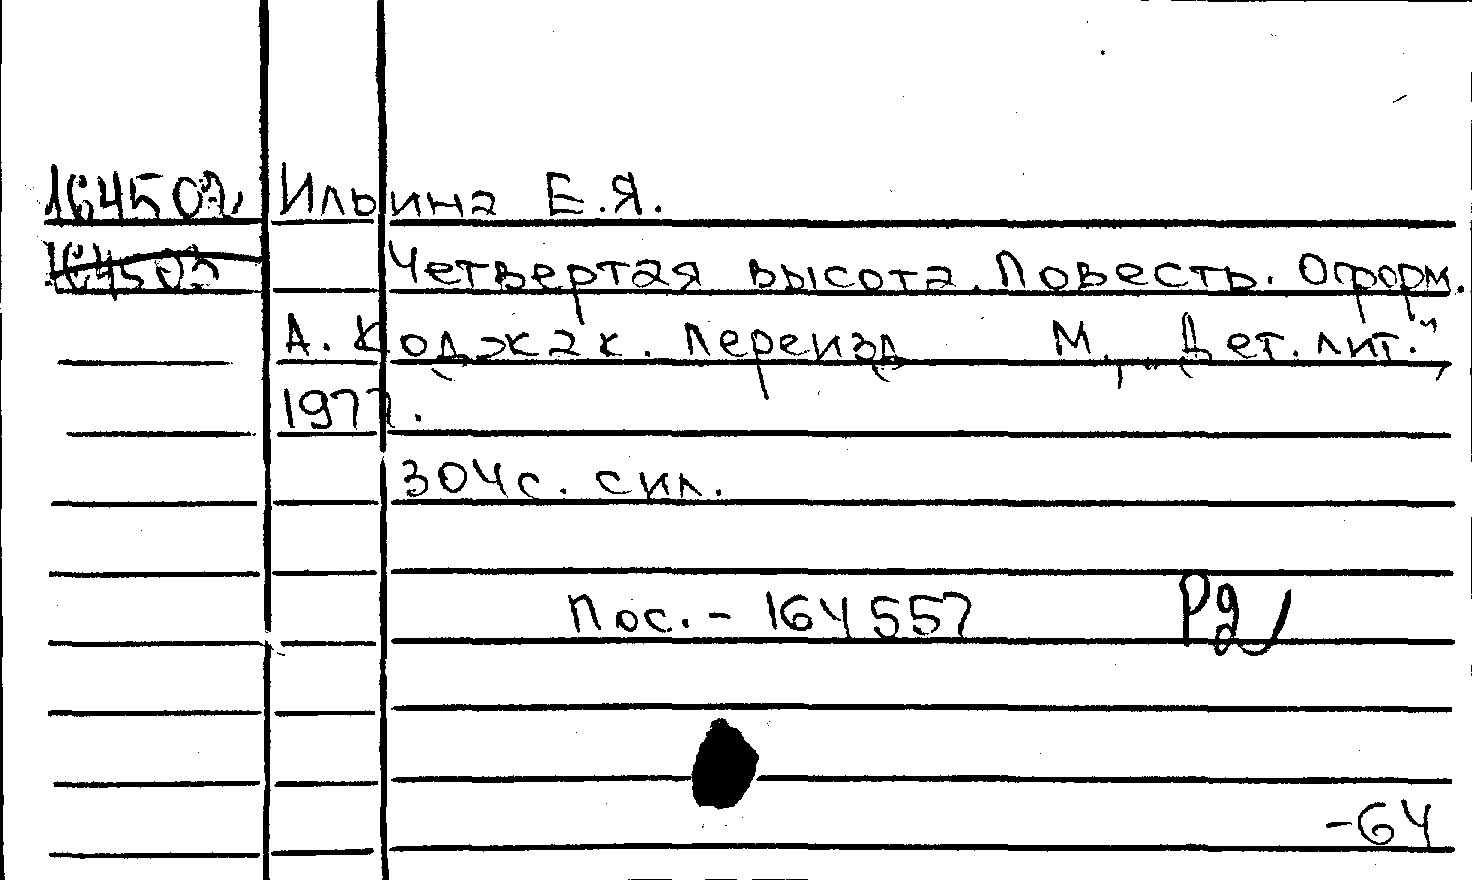 164502, Ильина Е.Я.
Четвертая высота. Повесть. Оформ.
А. Коджак. Переизд М., „Дет. лит.",
1977.
304с. сил.
Пос. - 164557
-64